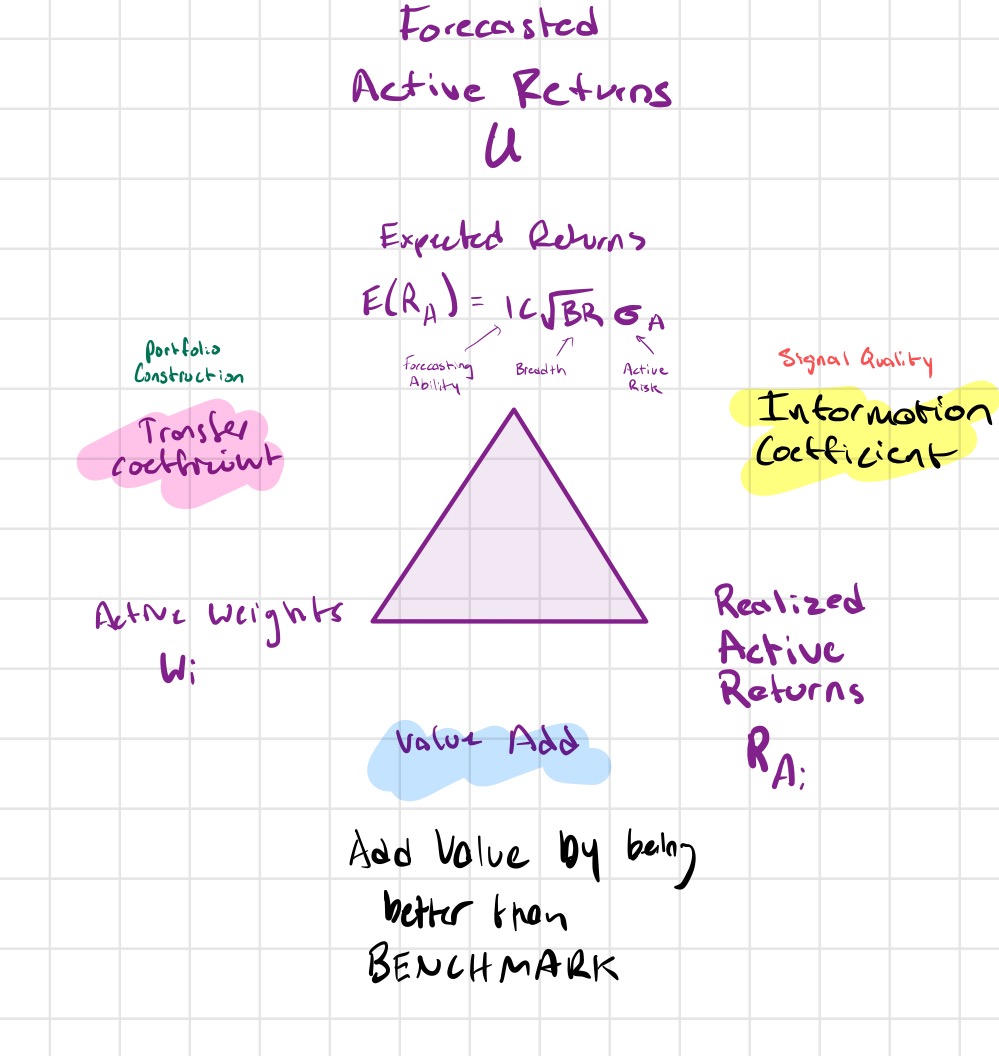 Forecasted
Active Returns
U
Expected Returns
E(R_A) = IC√BR σ_A
Forecasting
Ability
Breadth
Active
Risk
Portfolio
Construction
Transfer
Coefficient
Signal Quality
Information
Coefficient
Active Weights
Wi
Realized
Active
Returns
R_Ai
Value Add
Add Value by being
better than
BENCHMARK